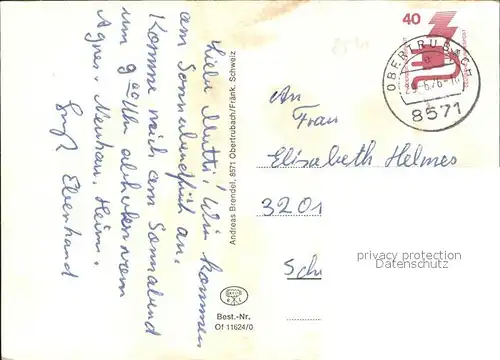 Liebe Mutti! Wir kommen
am Sonnabend früh an.
Komme mich am Sonnabend
um 9 00 Uhr abholen vom
Agnes. Neuhaus. Heim.
Gruß Eberhard
Andreas Brendel, 8571 Obertrubach/Fränk. Schweiz
Best.-Nr.
Of 11624/0
40
OBERTRUBACH
8571
An
Frau
Elisabeth Helmes
3201
Sch
privacy protection
Datenschutz